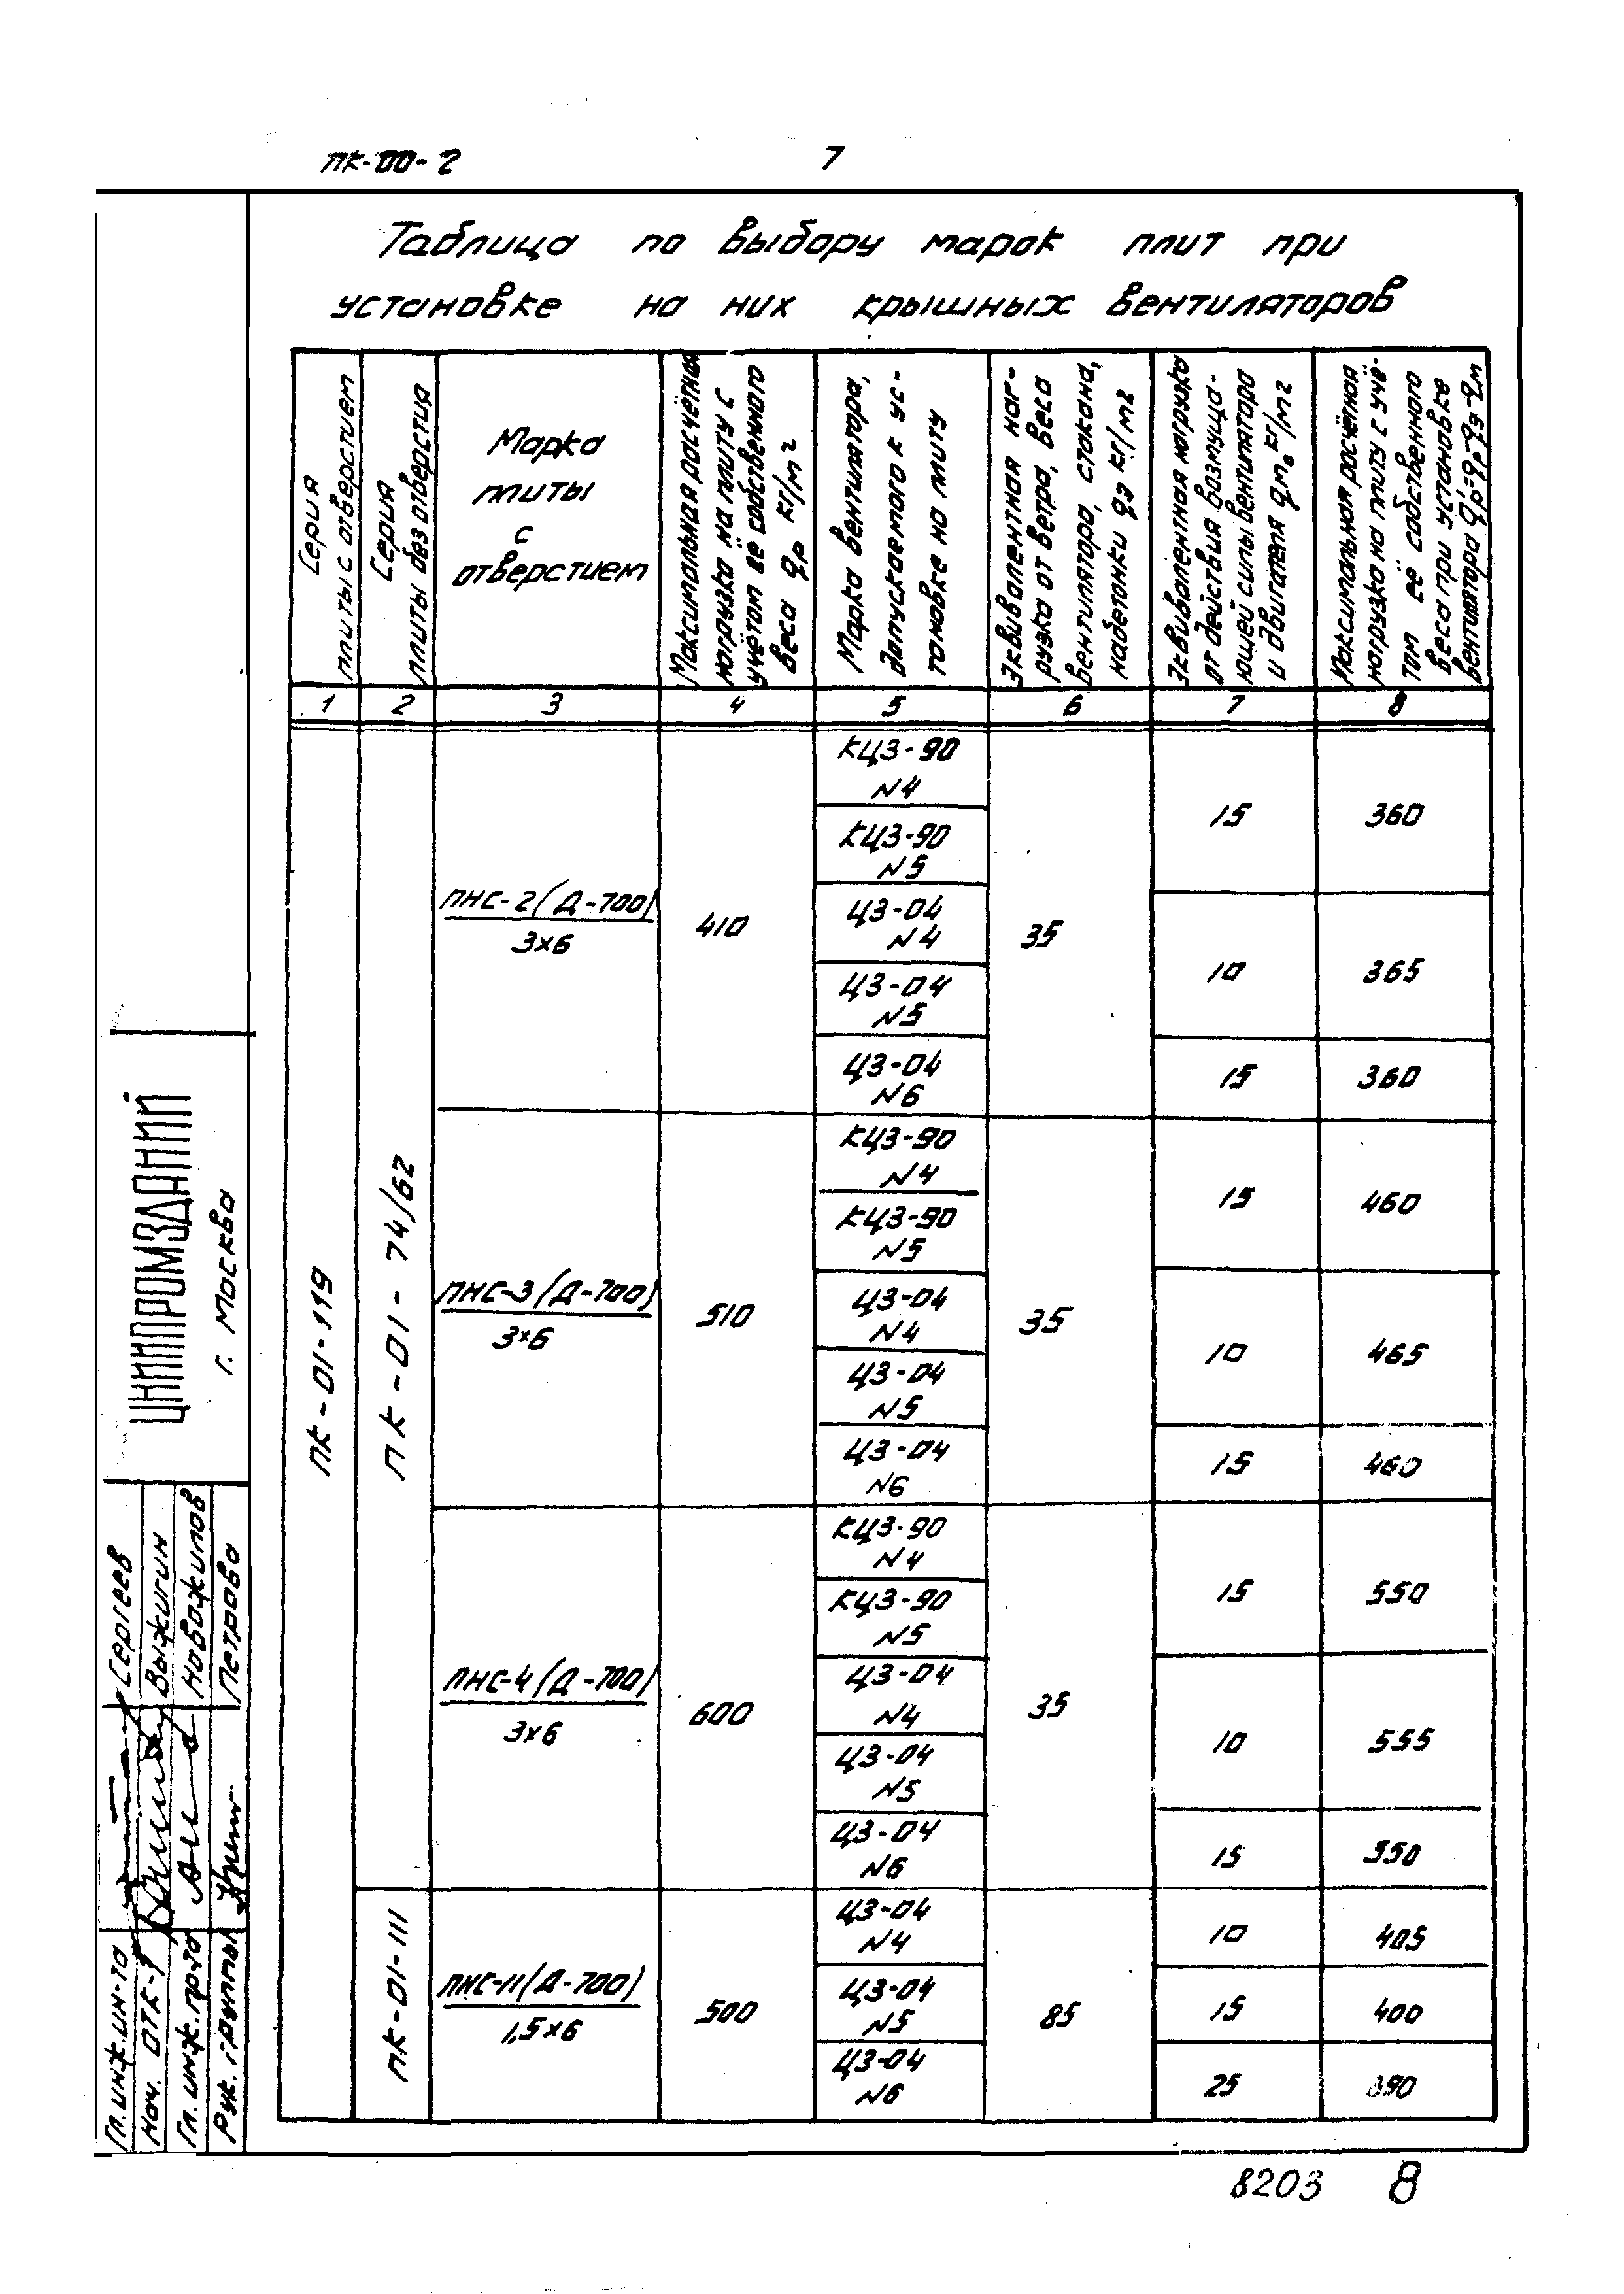 ПК-00-2
7
Таблица по выбору марок плит при
установке на них крышных вентиляторов
Серия
плиты с отверстием
Серия
плиты без отверстия
Марка
плиты
с
отверстием
Максимальная расчётная
нагрузка на плиту с
учётом её собственного
веса qр кг/м2
Марка вентилятора,
допускаемого к ус-
тановке на плиту
Эквивалентная наг-
рузка от ветра, веса
вентилятора, стакана,
набетонки qэ кг/м2
Эквивалентная нагрузка
от действия возмуща-
ющей силы вентилятора
и двигателя qм, кг/м2
Максимальная расчётная
нагрузка на плиту с учё-
том её собственного
веса при установке
вентилятора qр'=qр-qэ-qм
1 2 3 4 5 6 7 8
ПК-01-119
ПК-01-74/62
ПНС-2(Д-700)
3×6
410
КЦЗ-90
N4
КЦЗ-90
N5
ЦЗ-04
N4
ЦЗ-04
N5
ЦЗ-04
N6
35
15 360
10 365
15 360
ПНС-3(Д-700)
3×6
510
КЦЗ-90
N4
КЦЗ-90
N5
ЦЗ-04
N4
ЦЗ-04
N5
ЦЗ-04
N6
35
15 460
10 465
15 460
ПНС-4(Д-700)
3×6
600
КЦЗ-90
N4
КЦЗ-90
N5
ЦЗ-04
N4
ЦЗ-04
N5
ЦЗ-04
N6
35
15 550
10 555
15 550
ПК-01-111
ПНС-11(Д-700)
1,5×6
500
ЦЗ-04
N4
ЦЗ-04
N5
ЦЗ-04
N6
85
10 405
15 400
25 390
ЦНИИПРОМЗДАНИЙ
г. Москва
Гл.инж.ин-та Сергеев
Нач. ОТК-1 Выжигин
Гл.инж.пр-та Новожилов
Рук. группы Петрова
8203 8